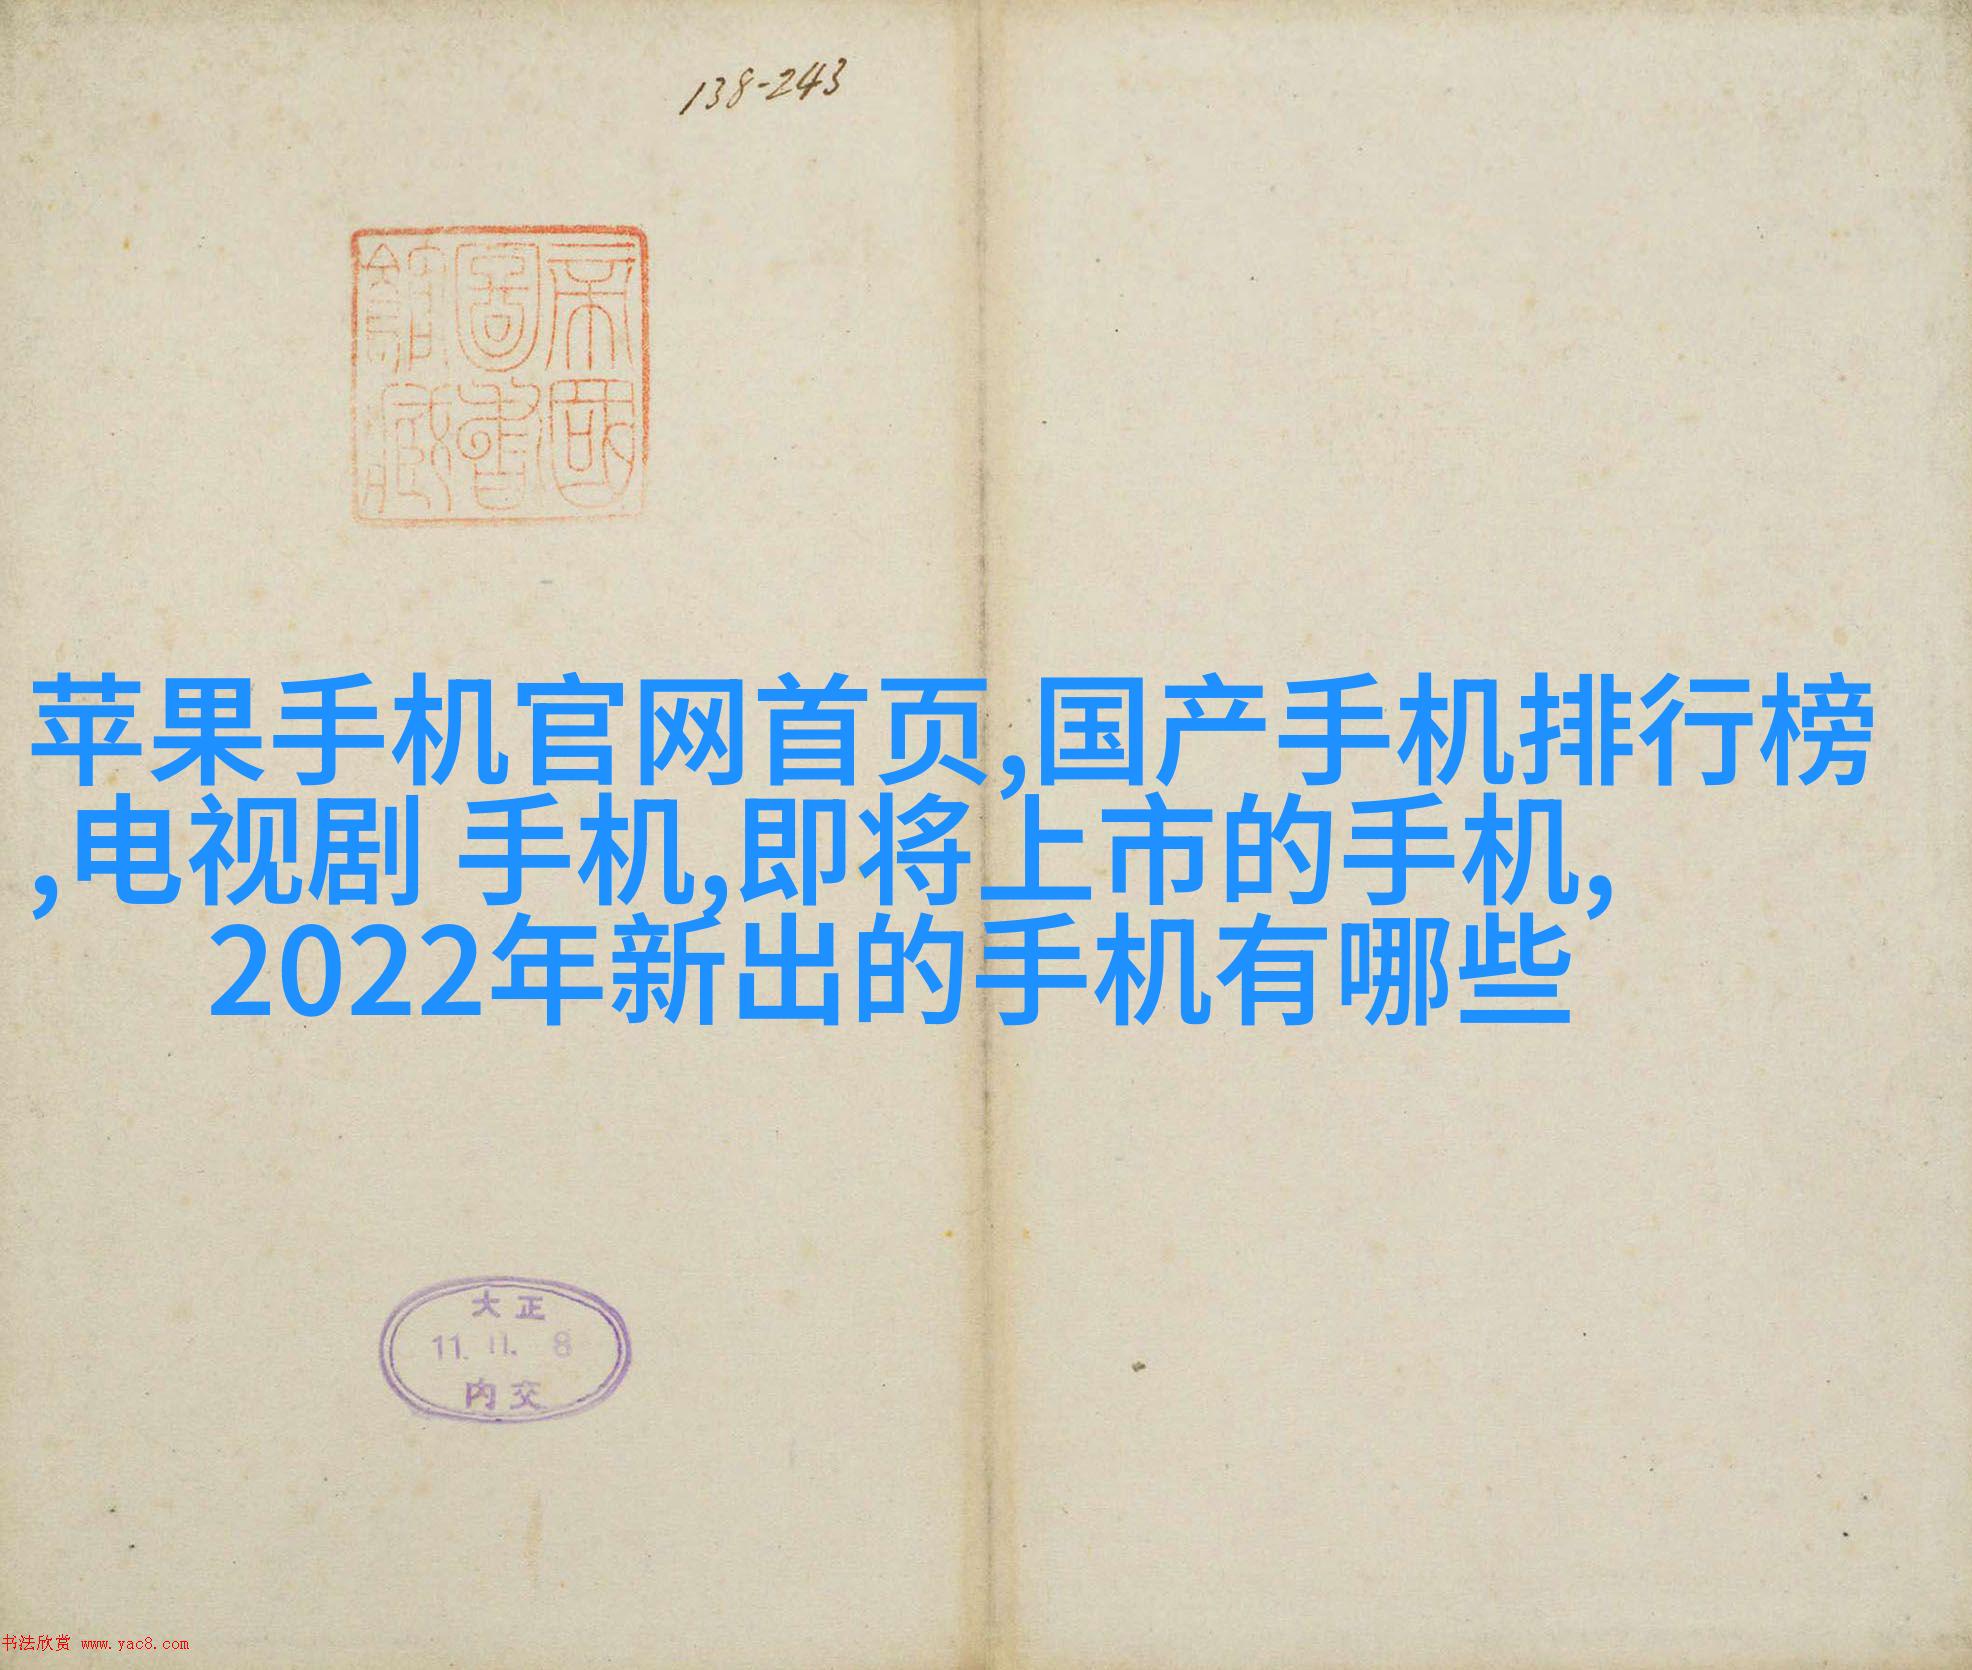 138-243
帝國
圖書
館藏
苹果手机官网首页,国产手机排行榜
,电视剧 手机,即将上市的手机,
2022年新出的手机有哪些
大正
11. 11. 8
内交
书法欣赏 www.yac8.com